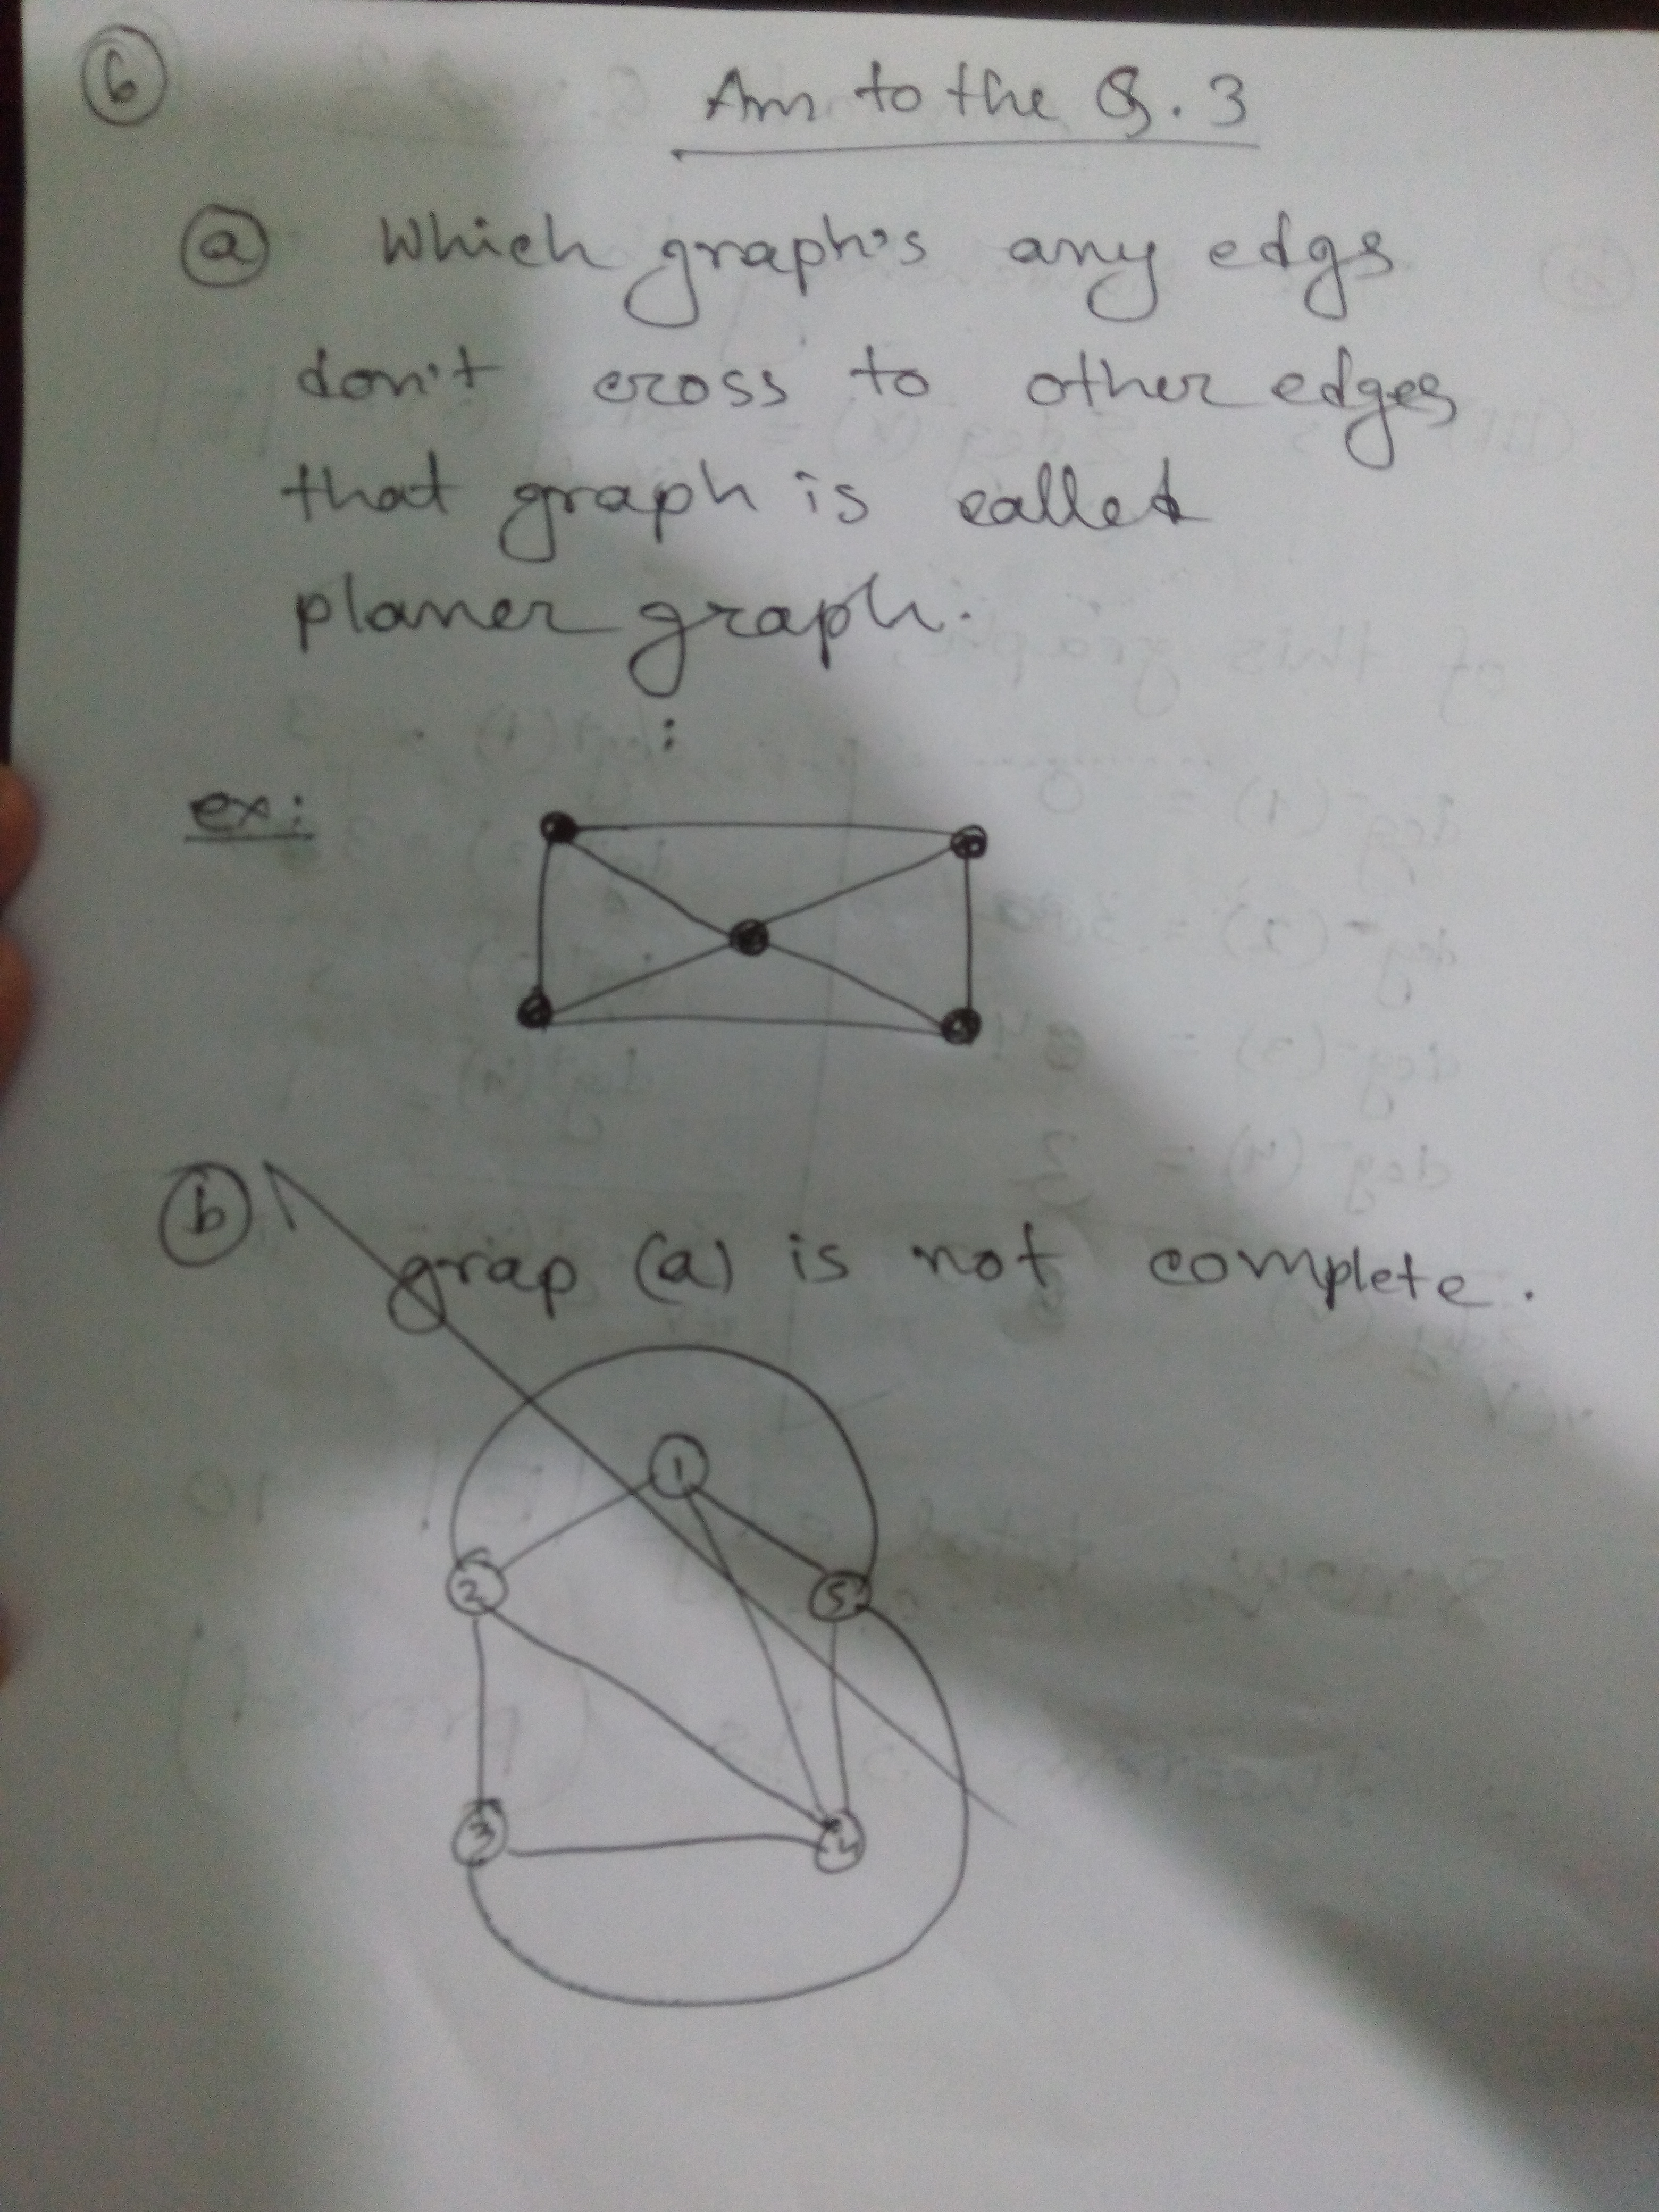 6
Ans to the Q. 3
a Which graph's any edgs
don't cross to other edges
that graph is called
planer graph.
ex:
b
grap (a) is not complete.
1
2
5
3
4